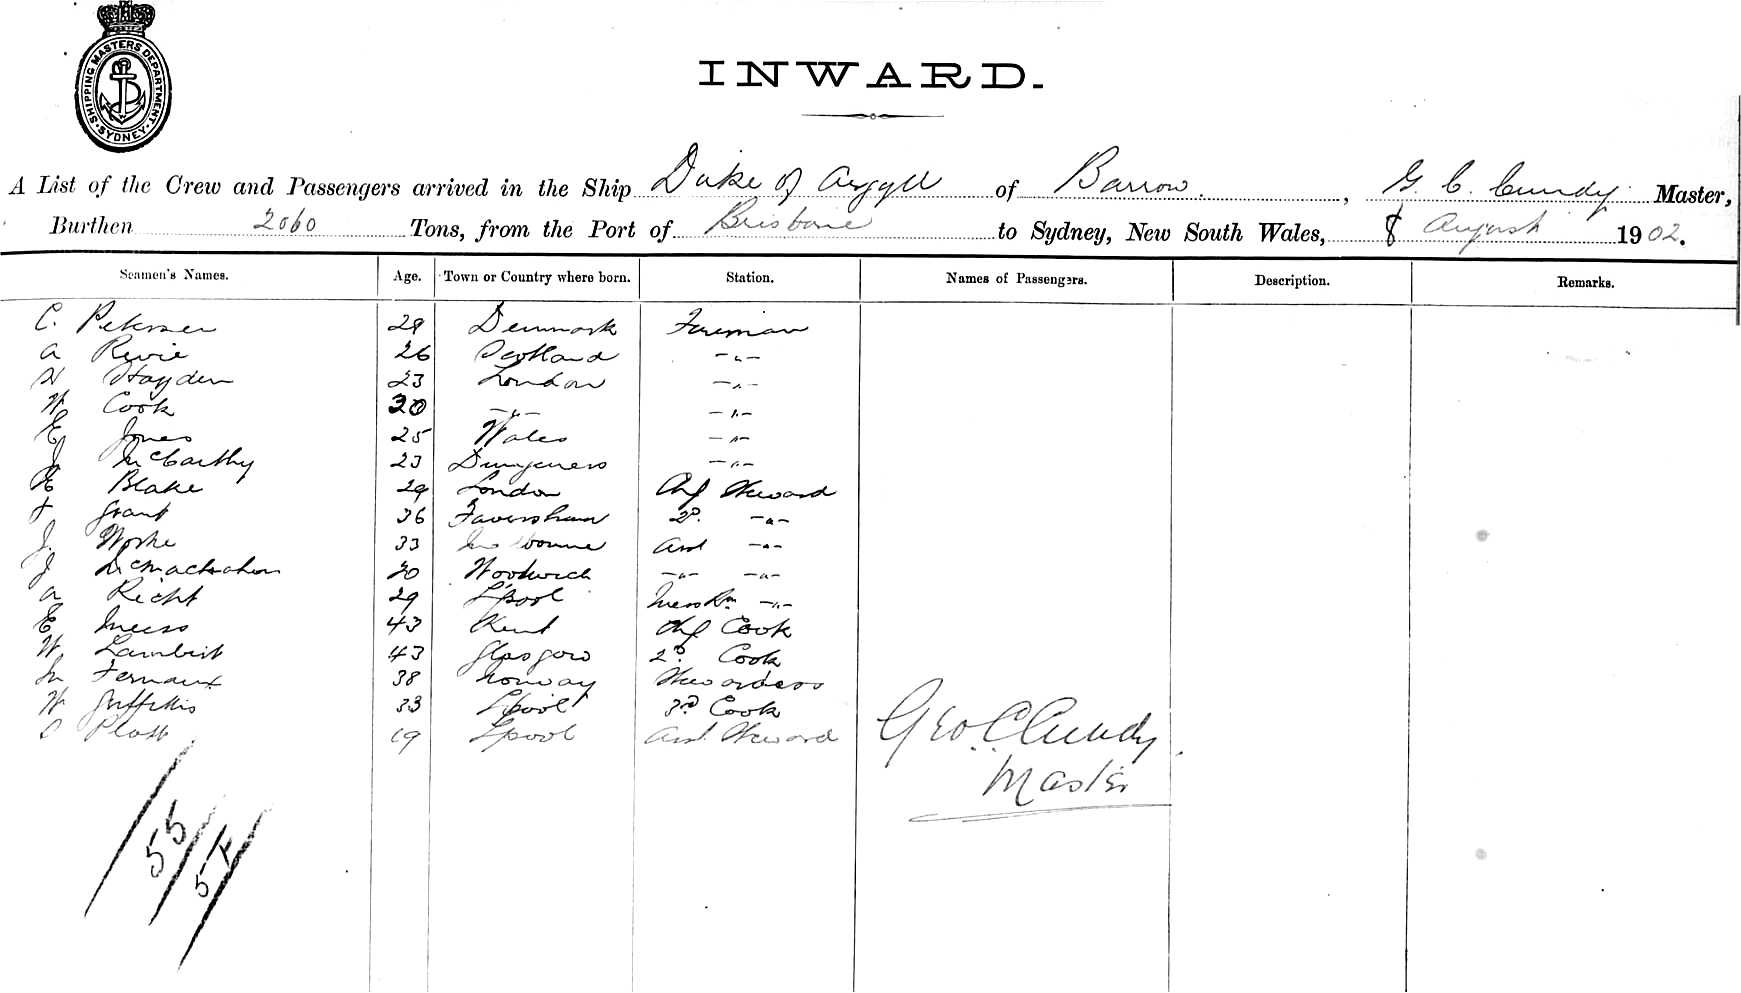 SHIPPING MASTERS DEPARTMENT. SYDNEY
INWARD.
A List of the Crew and Passengers arrived in the Ship Duke of Argyll of Barrow, G. C. Cundy Master,
Burthen 2060 Tons, from the Port of Brisbane to Sydney, New South Wales, 8 August 1902.
Seamen's Names. Age. Town or Country where born. Station. Names of Passengers. Description. Remarks.
C. Petersen 29 Denmark Fireman
A Revie 26 Scotland -"-
H Hayden 23 London -"-
W Cook 30 -"- -"-
E Jones 25 Wales -"-
J McCarthy 23 Dungeness -"-
E Blake 29 London Chf Steward
F Grant 36 Faversham 2d -"-
J. 33 Asst -"-
J 20 Woolwich -"- -"-
A Richt 29 L'pool Messrm -"-
E 43 Kent Chf Cook
W. Lambert 43 Glasgow 2d Cook
M 38 Norway Stewardess
W Griffiths 33 L'pool 3rd Cook
Platt 19 L'pool Asst. Steward
Geo. C. Cundy.
Master
55
54